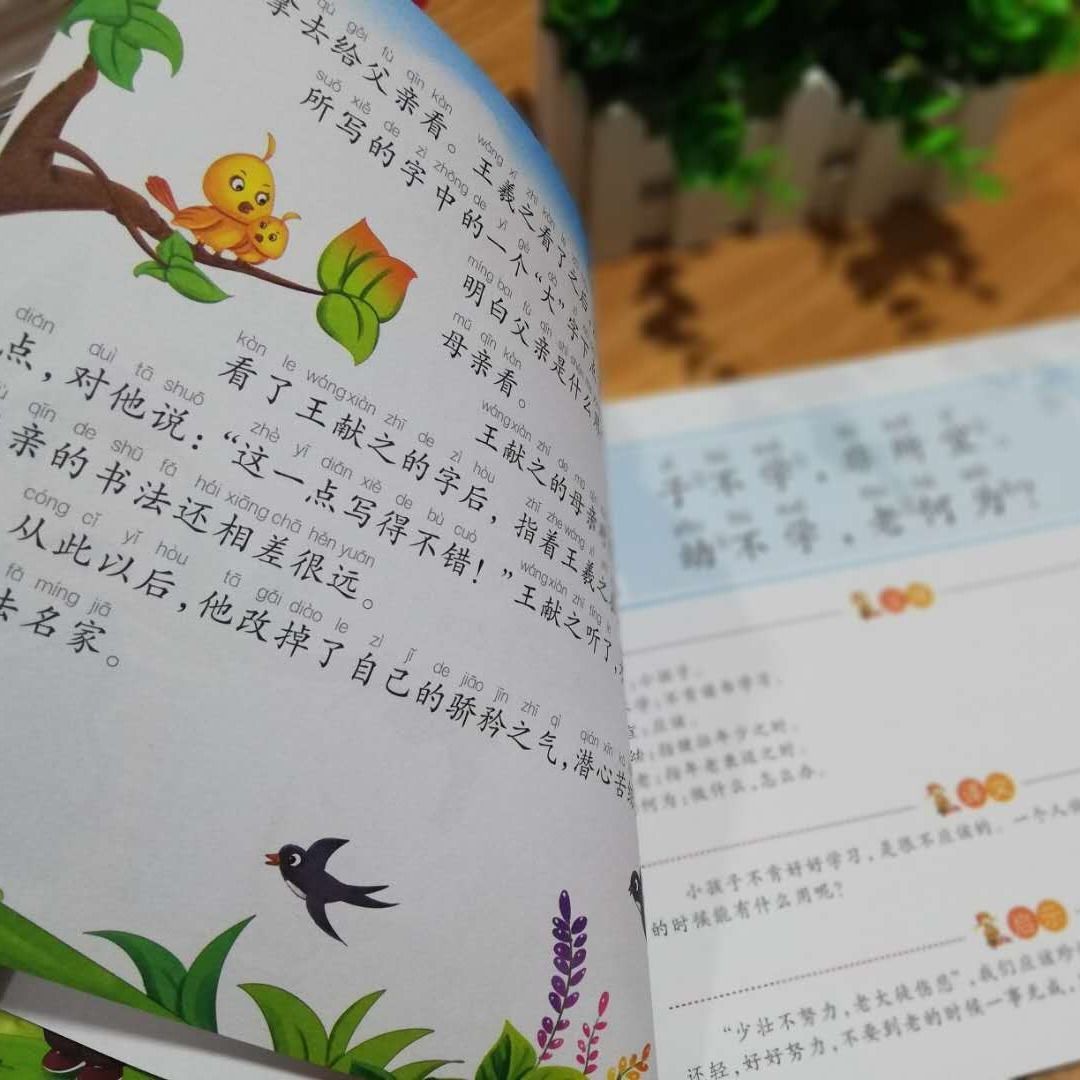 qù gěi fù qīn kàn wáng xī zhī kàn le
拿去给父亲看。王羲之看了之后
suǒ xiě de zì zhōng de yī gè
所写的字中的一个“大”字下
míng bai fù qīn shì shén
明白父亲是什么
mǔ qīn kàn
母亲看。
wáng xiàn zhī de mǔ qīn
王献之的母亲
kàn le wáng xiàn zhī de zì hòu zhǐ zhe wáng xī
看了王献之的字后，指着王羲之
diǎn duì tā shuō zhè yī diǎn xiě de bù cuò wáng xiàn zhī tīng le
点，对他说：“这一点写得不错！”王献之听了，
qīn de shū fǎ hái xiāng chā hěn yuǎn
亲的书法还相差很远。
cóng cǐ yǐ hòu tā gǎi diào le zì jǐ de jiāo jīn zhī qì qián xīn kǔ
从此以后，他改掉了自己的骄矜之气，潜心苦练
fǎ míng jiā
法名家。
子不学，非所宜。
幼不学，老何为？
小孩子。
学：不肯读书学习。
宜：应该。
幼：指健壮年少之时。
老：指年老衰退之时。
何为：做什么，怎么办。
译文
小孩子不肯好好学习，是很不应该的。一个人
的时候能有什么用呢？
启示
“少壮不努力，老大徒伤悲”，我们应该珍
还轻，好好努力，不要到老的时候一事无成，